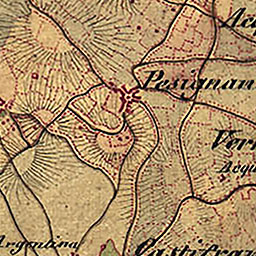 Acq
Pesignan
Ver
Acqu
Argentina
Castifran